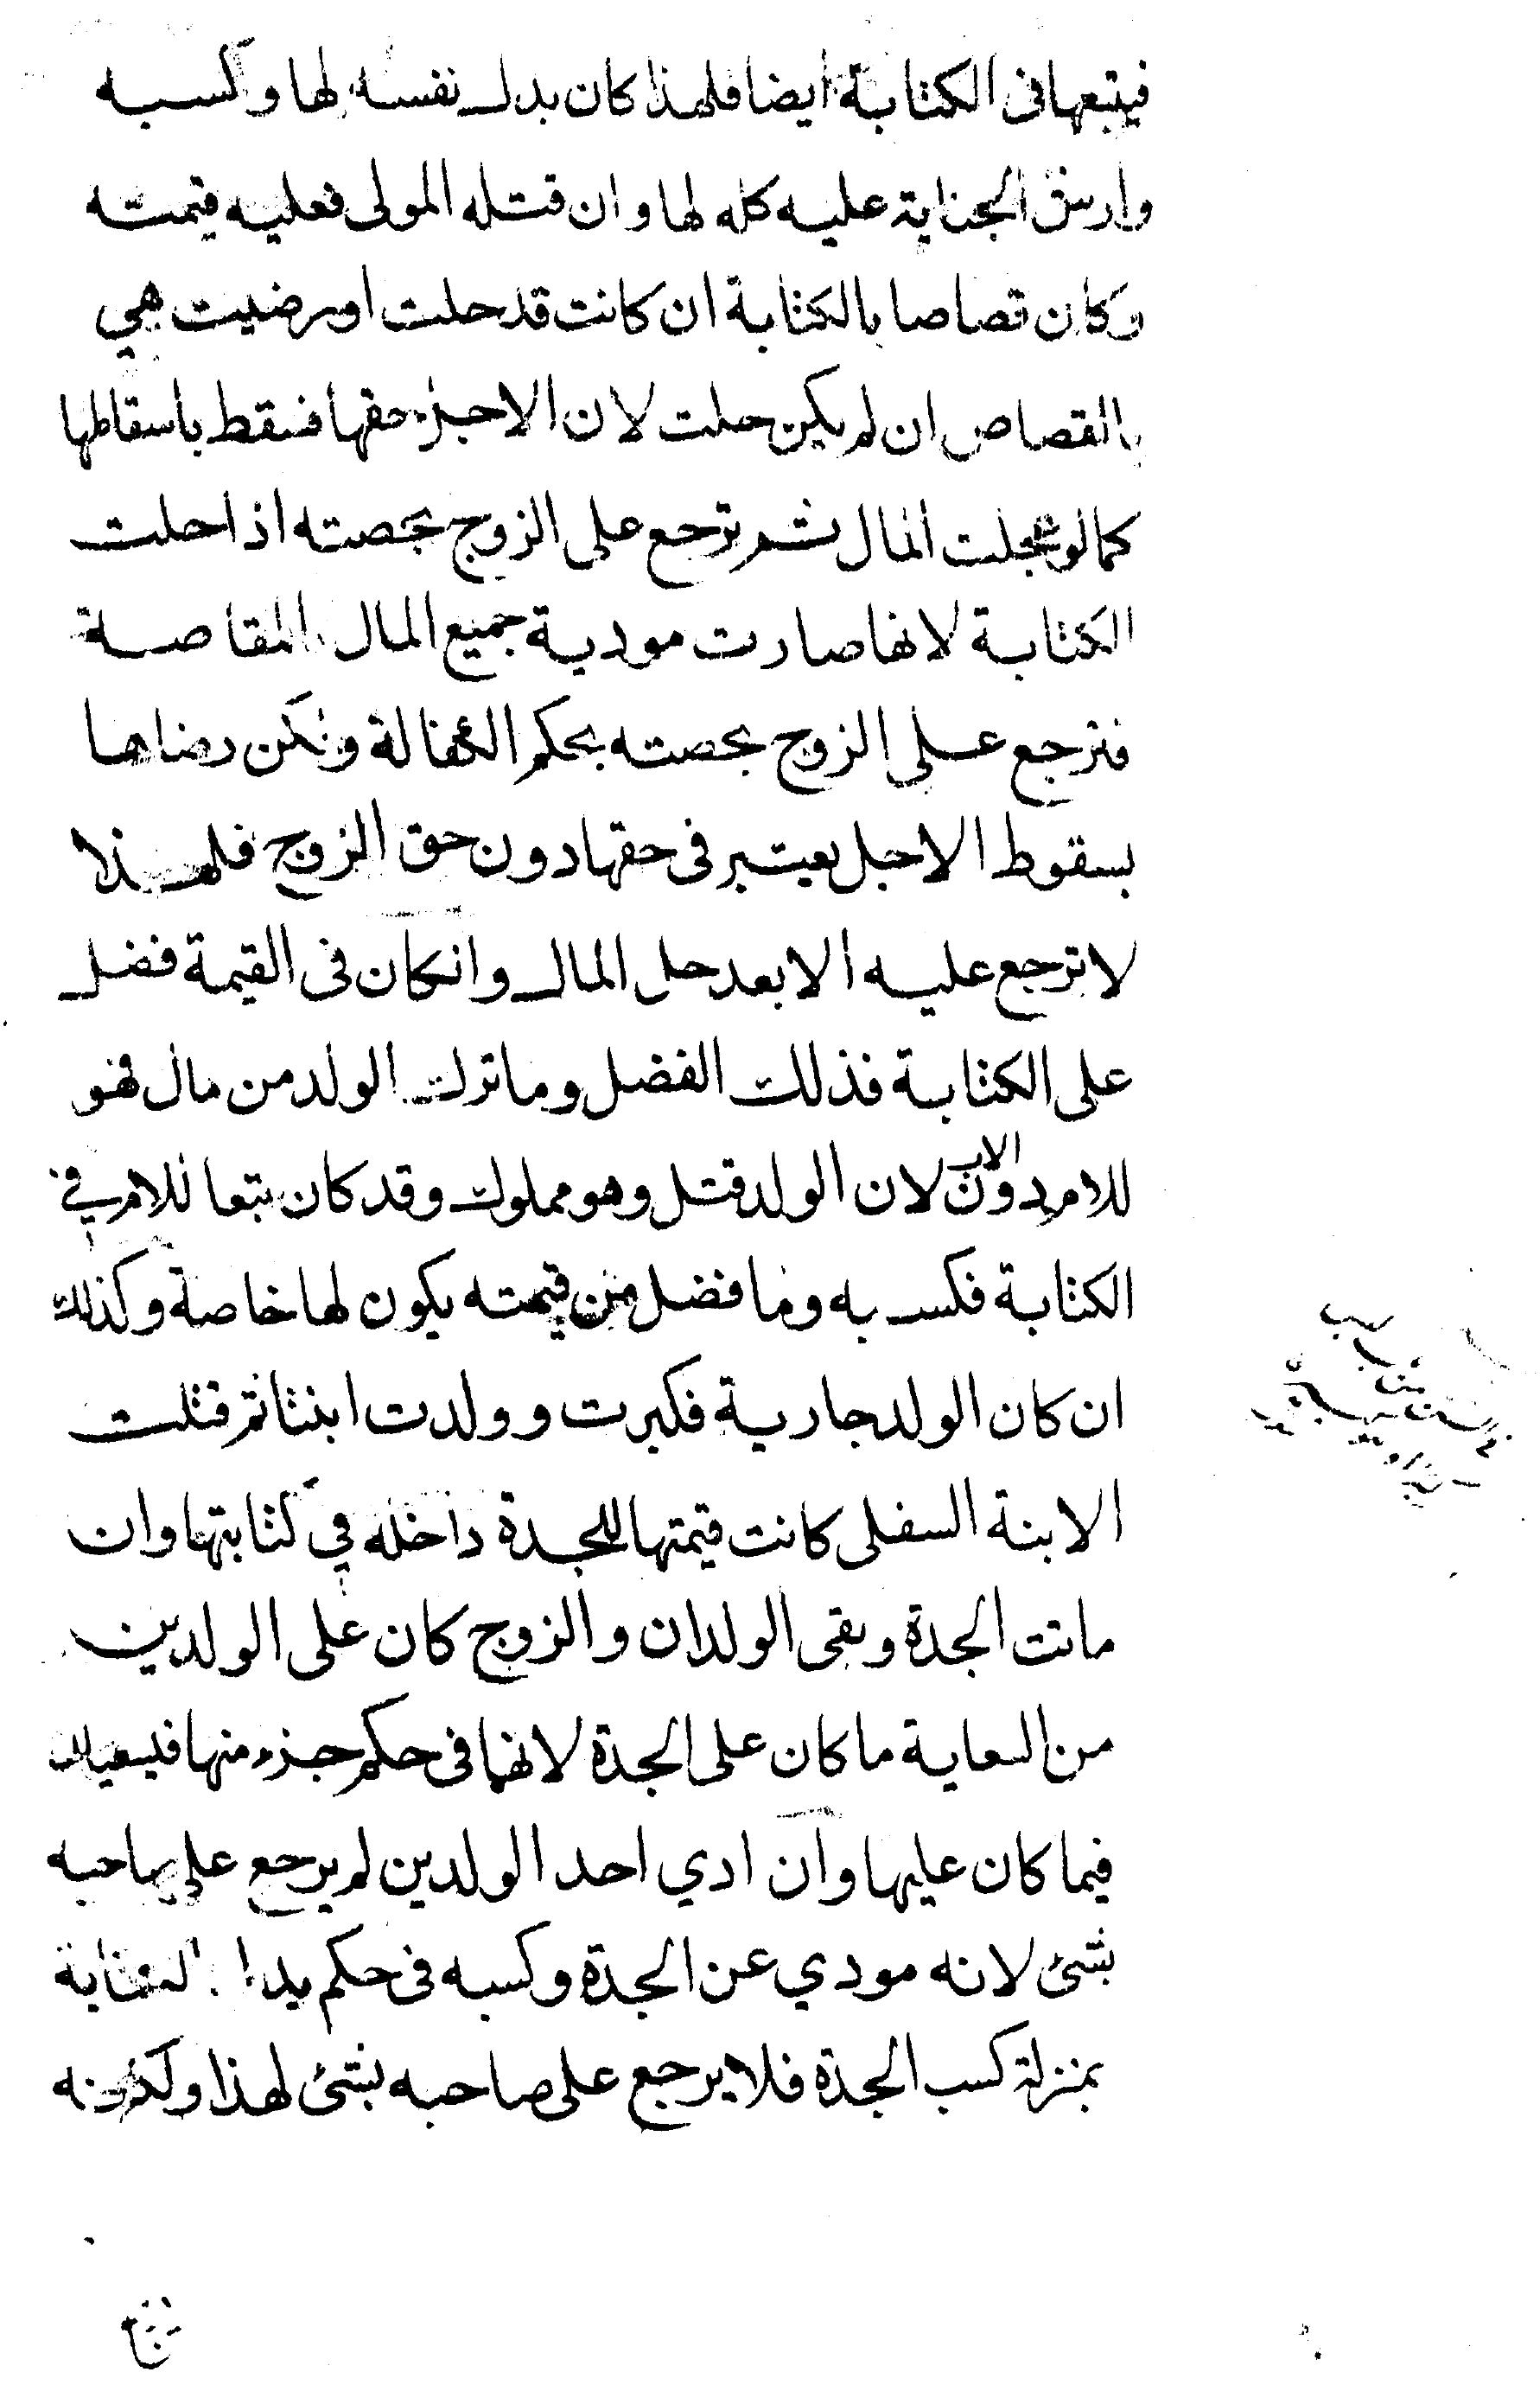 فيتبعها في الكتابة ايضا فلهذا كان بدل نفسه لها وكسبه
وارش الجناية عليه كله لها وان قتله المولى فعليه قيمته
وكان قصاصا بالكتابة ان كانت قد حلت او رضيت هي
بالقصاص ان لم يكن حلت لان الاجل حقها فسقط باسقاطها
كما لو عجلت المال ثم ترجع على الزوج بحصته اذا حلت
الكتابة لانها صارت مودية جميع المال المقاصة
فترجع على الزوج بحصته بحكم الكفالة ولكن رضاها
بسقوط الاجل يعتبر في حقها دون حق الزوج فلهذا
لا ترجع عليه الا بعد حل المال وانكان في القيمة فضل
على الكتابة فذلك الفضل وما ترك الولد من مال فهو
للام دون الاب لان الولد قتل وهو مملوك وقد كان تبعا للام في
الكتابة فكسبه وما فضل من قيمته يكون لها خاصة وكذلك
ان كان الولد جارية فكبرت وولدت ابنتا ثم قتلت
الابنة السفلى كانت قيمتها للجدة داخله في كتابتها وان
ماتت الجدة وبقى الولدان والزوج كان على الولدين
من السعاية ما كان على الجدة لانهما في حكم جزء منها فيسعيان
فيما كان عليها وان ادي احد الولدين لم يرجع على صاحبه
بشئ لانه مودي عن الجدة وكسبه في حكم بدل الكتابة
بمنزلة كسب الجدة فلا يرجع على صاحبه بشئ لهذا ولكونه